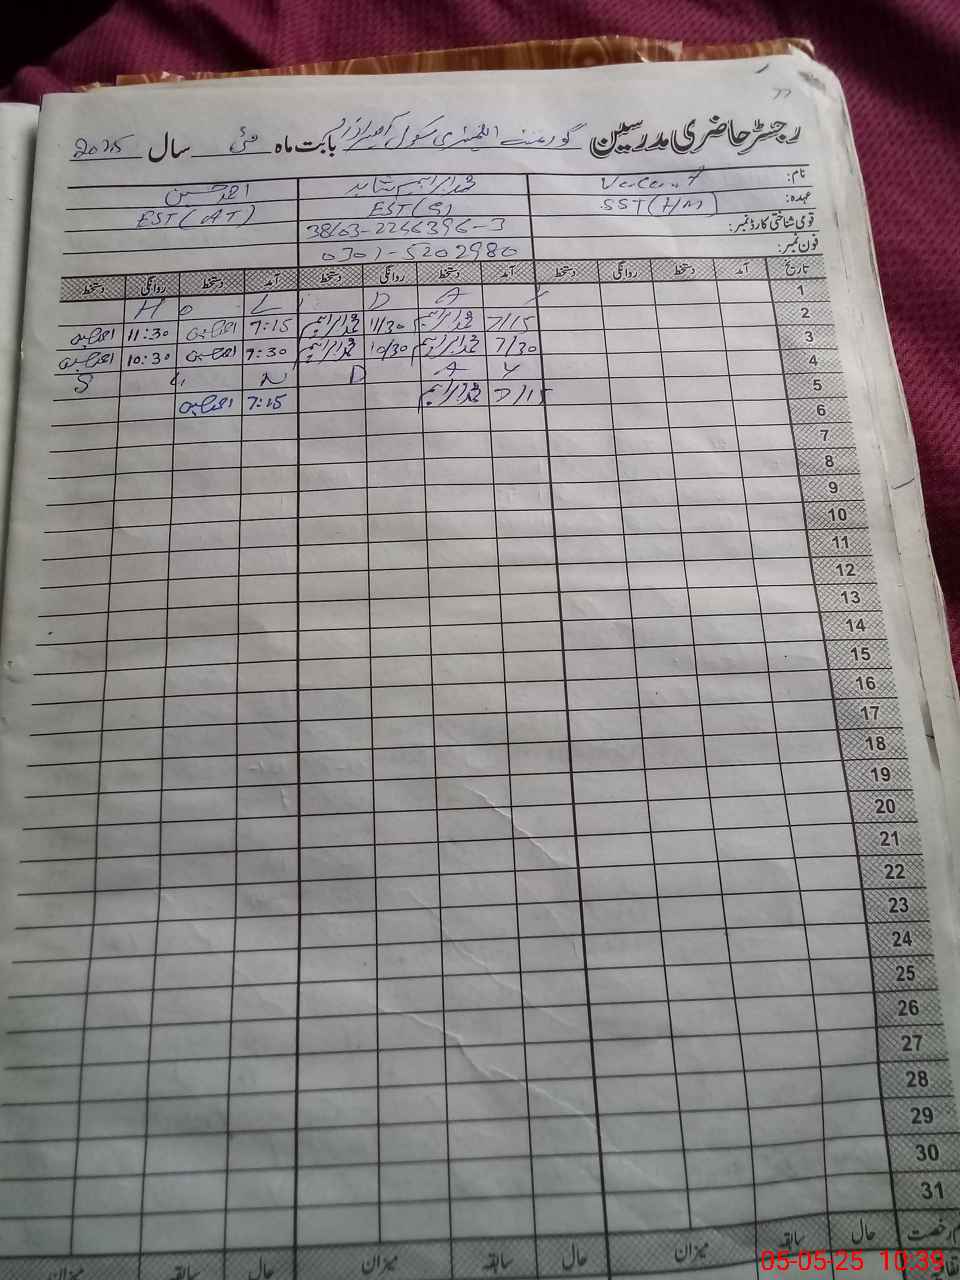 رجسٹر حاضری مدرسین گورنمنٹ ایلیمنٹری سکول بابت ماہ مئی سال 2025
نام: Vacant محمد ابراہیم شاہد احمد حسن
عہدہ: SST(HM) EST(S) EST(AT)
قومی شناختی کارڈ نمبر: 38103-2246396-3
فون نمبر: 0301-5202980
تاریخ آمد دستخط روانگی دستخط آمد دستخط روانگی دستخط آمد دستخط روانگی دستخط
1 H O L I D A Y
2 7/15 محمد ابراہیم 11/30 محمد ابراہیم 7:15 11:30
3 7/30 محمد ابراہیم 10/30 محمد ابراہیم 7:30 10:30
4 S U N D A Y
5 7/15 محمد ابراہیم 7:15
6
7
8
9
10
11
12
13
14
15
16
17
18
19
20
21
22
23
24
25
26
27
28
29
30
31
رخصت حال سابقہ میزان حال سابقہ میزان حال سابقہ میزان
05-05-25 10:39